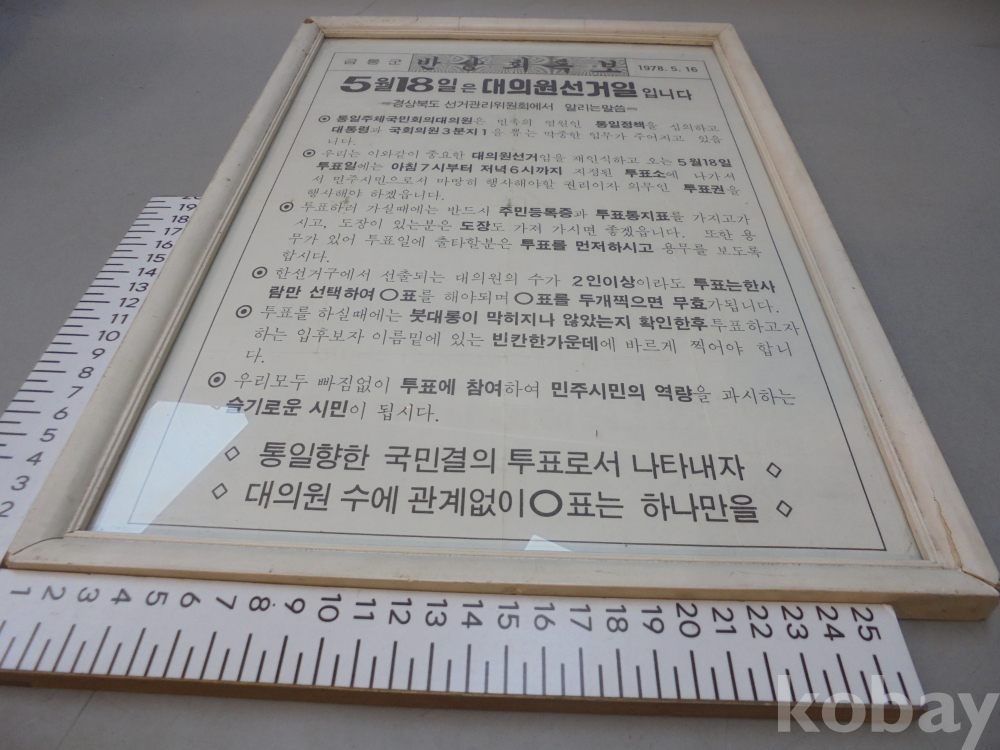 금릉군 반상회특보 1978. 5. 16
5월18일은 대의원선거일 입니다
=경상북도 선거관리위원회에서 알리는말씀=
⊙ 통일주체국민회의대의원은 민족의 염원인 통일정책을 심의하고
대통령과 국회의원3분지1을 뽑는 막중한 임무가 주어지고 있읍
니다.
⊙ 우리는 이와같이 중요한 대의원선거임을 재인식하고 오는 5월18일
투표일에는 아침7시부터 저녁6시까지 지정된 투표소에 나가셔
서 민주시민으로서 마땅히 행사해야할 권리이자 의무인 투표권을
행사해야 하겠읍니다.
⊙ 투표하러 가실때에는 반드시 주민등록증과 투표통지표를 가지고가
시고, 도장이 있는분은 도장도 가져 가시면 좋겠읍니다. 또한 용
무가 있어 투표일에 출타할분은 투표를 먼저하시고 용무를 보도록
합시다.
⊙ 한선거구에서 선출되는 대의원의 수가 2인이상이라도 투표는한사
람만 선택하여 ○표를 해야되며 ○표를 두개찍으면 무효가됩니다.
⊙ 투표를 하실때에는 붓대롱이 막히지나 않았는지 확인한후 투표하고자
하는 입후보자 이름밑에 있는 빈칸한가운데에 바르게 찍어야 합니
다.
⊙ 우리모두 빠짐없이 투표에 참여하여 민주시민의 역량을 과시하는
슬기로운 시민이 됩시다.
◇ 통일향한 국민결의 투표로서 나타내자 ◇
◇ 대의원 수에 관계없이 ○표는 하나만을 ◇
20
19
18
17
16
15
14
13
12
11
10
9
8
7
6
5
4
3
2
1 2 3 4 5 6 7 8 9 10 11 12 13 14 15 16 17 18 19 20 21 22 23 24 25
kobay